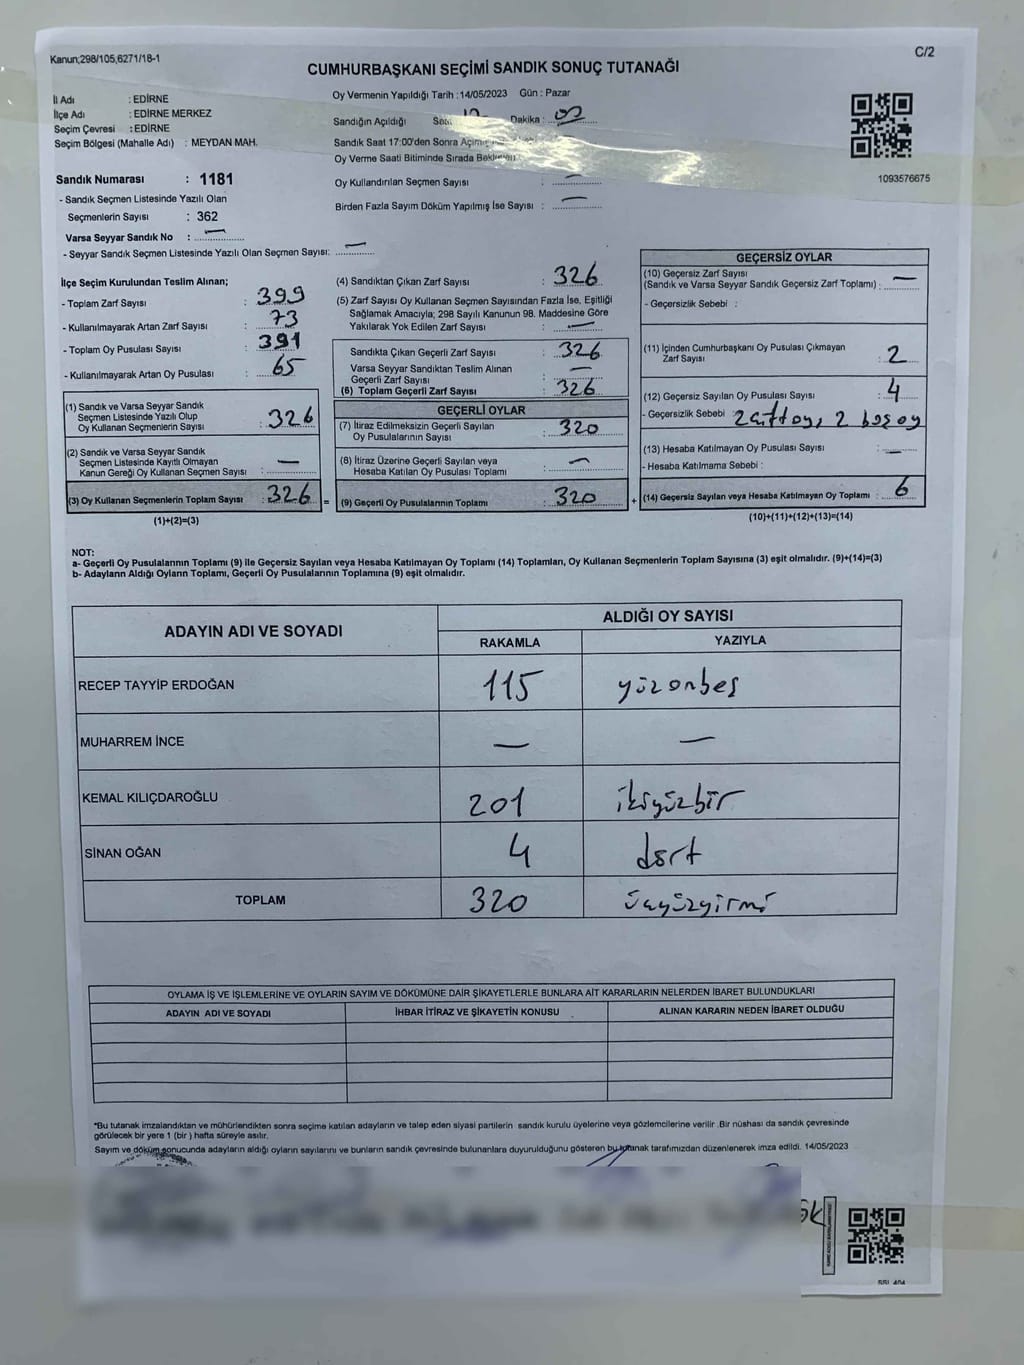 Kanun;298/105,6271/18-1
C/2
CUMHURBAŞKANI SEÇİMİ SANDIK SONUÇ TUTANAĞI
Oy Vermenin Yapıldığı Tarih :14/05/2023 Gün : Pazar
İl Adı : EDİRNE
İlçe Adı : EDİRNE MERKEZ
Seçim Çevresi : EDİRNE
Seçim Bölgesi (Mahalle Adı) : MEYDAN MAH.
Sandığın Açıldığı Dakika :
Sandık Saat 17:00'den Sonra
Oy Verme Saati Bitiminde Sırada
1093576675
Sandık Numarası : 1181
Oy Kullandırılan Seçmen Sayısı : —
- Sandık Seçmen Listesinde Yazılı Olan
Seçmenlerin Sayısı : 362
Birden Fazla Sayım Döküm Yapılmış İse Sayısı : —
Varsa Seyyar Sandık No : —
- Seyyar Sandık Seçmen Listesinde Yazılı Olan Seçmen Sayısı: —
İlçe Seçim Kurulundan Teslim Alınan;
- Toplam Zarf Sayısı : 399
- Kullanılmayarak Artan Zarf Sayısı : 73
- Toplam Oy Pusulası Sayısı : 391
- Kullanılmayarak Artan Oy Pusulası : 65
(1) Sandık ve Varsa Seyyar Sandık
Seçmen Listesinde Yazılı Olup
Oy Kullanan Seçmenlerin Sayısı : 326
(2) Sandık ve Varsa Seyyar Sandık
Seçmen Listesinde Kayıtlı Olmayan
Kanun Gereği Oy Kullanan Seçmen Sayısı : —
(3) Oy Kullanan Seçmenlerin Toplam Sayısı : 326 =
(1)+(2)=(3)
(4) Sandıktan Çıkan Zarf Sayısı : 326
(5) Zarf Sayısı Oy Kullanan Seçmen Sayısından Fazla İse, Eşitliği
Sağlamak Amacıyla; 298 Sayılı Kanunun 98. Maddesine Göre
Yakılarak Yok Edilen Zarf Sayısı : —
Sandıkta Çıkan Geçerli Zarf Sayısı : 326
Varsa Seyyar Sandıktan Teslim Alınan
Geçerli Zarf Sayısı : —
(6) Toplam Geçerli Zarf Sayısı : 326
GEÇERLİ OYLAR
(7) İtiraz Edilmeksizin Geçerli Sayılan
Oy Pusulalarının Sayısı : 320
(8) İtiraz Üzerine Geçerli Sayılan veya
Hesaba Katılan Oy Pusulası Toplamı : —
(9) Geçerli Oy Pusulalarının Toplamı : 320 +
GEÇERSİZ OYLAR
(10) Geçersiz Zarf Sayısı
(Sandık ve Varsa Seyyar Sandık Geçersiz Zarf Toplamı) : —
- Geçersizlik Sebebi :
(11) İçinden Cumhurbaşkanı Oy Pusulası Çıkmayan
Zarf Sayısı : 2
(12) Geçersiz Sayılan Oy Pusulası Sayısı : 4
- Geçersizlik Sebebi : 2 çift oy, 2 boş oy
(13) Hesaba Katılmayan Oy Pusulası Sayısı : —
- Hesaba Katılmama Sebebi :
(14) Geçersiz Sayılan veya Hesaba Katılmayan Oy Toplamı : 6
(10)+(11)+(12)+(13)=(14)
NOT:
a- Geçerli Oy Pusulalarının Toplamı (9) ile Geçersiz Sayılan veya Hesaba Katılmayan Oy Toplamı (14) Toplamları, Oy Kullanan Seçmenlerin Toplam Sayısına (3) eşit olmalıdır. (9)+(14)=(3)
b- Adayların Aldığı Oyların Toplamı, Geçerli Oy Pusulalarının Toplamına (9) eşit olmalıdır.
ADAYIN ADI VE SOYADI ALDIĞI OY SAYISI
RAKAMLA YAZIYLA
RECEP TAYYİP ERDOĞAN 115 yüzonbeş
MUHARREM İNCE — —
KEMAL KILIÇDAROĞLU 201 ikiyüzbir
SİNAN OĞAN 4 dört
TOPLAM 320 üçyüzyirmi
OYLAMA İŞ VE İŞLEMLERİNE VE OYLARIN SAYIM VE DÖKÜMÜNE DAİR ŞİKAYETLERLE BUNLARA AİT KARARLARIN NELERDEN İBARET BULUNDUKLARI
ADAYIN ADI VE SOYADI İHBAR İTİRAZ VE ŞİKAYETİN KONUSU ALINAN KARARIN NEDEN İBARET OLDUĞU
*Bu tutanak imzalandıktan ve mühürlendikten sonra seçime katılan adayların ve talep eden siyasi partilerin sandık kurulu üyelerine veya gözlemcilerine verilir .Bir nüshası da sandık çevresinde
görülecek bir yere 1 (bir ) hafta süreyle asılır.
Sayım ve döküm sonucunda adayların aldığı oyların sayılarını ve bunların sandık çevresinde bulunanlara duyurulduğunu gösteren bu tutanak tarafımızdan düzenlenerek imza edildi. 14/05/2023